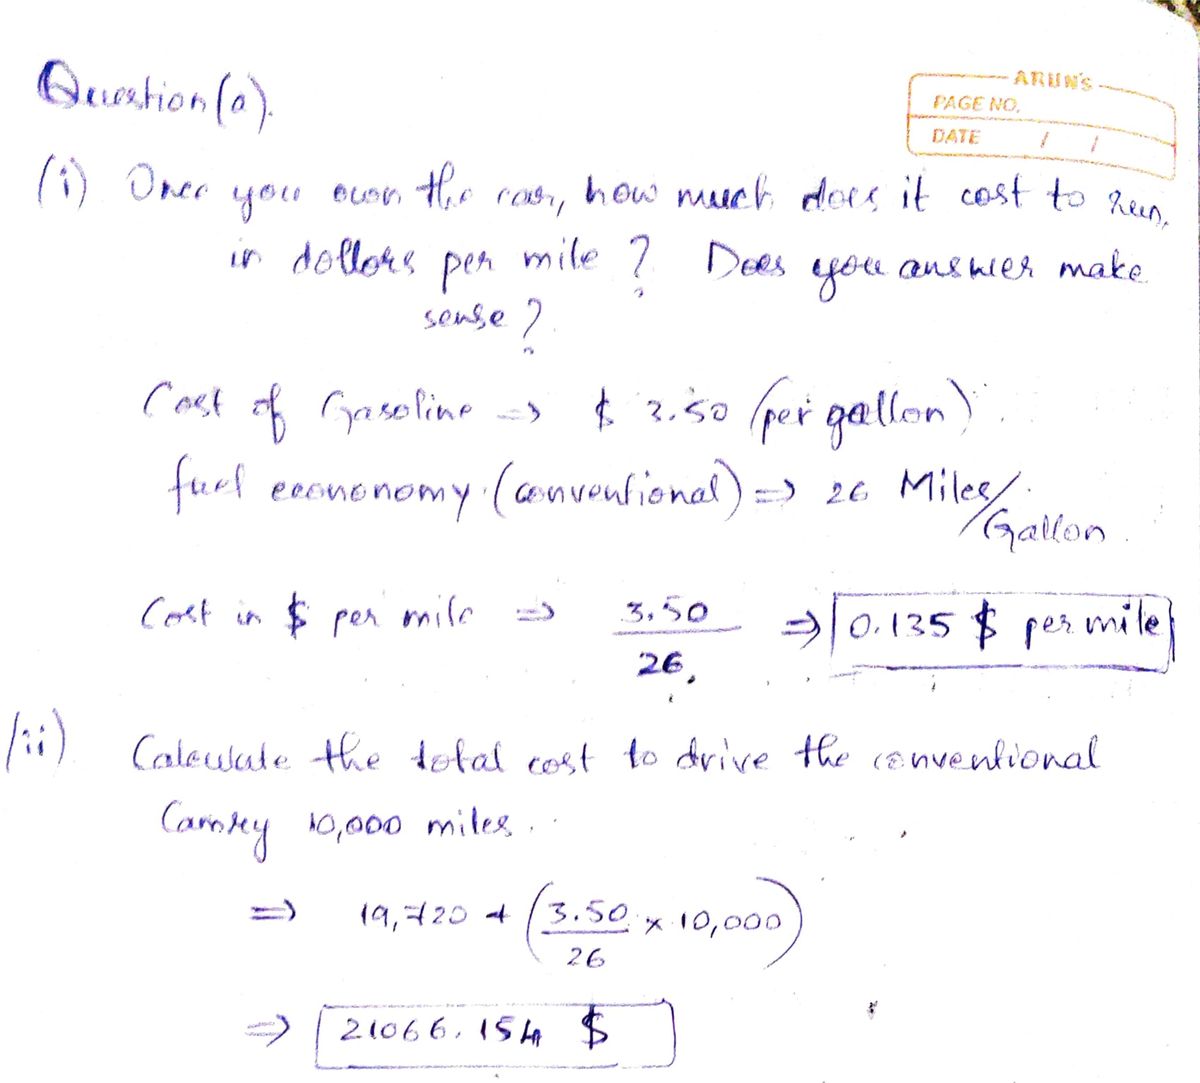 Question (a).
ARUN'S
PAGE NO.
DATE / /
(i) Once you own the car, how much does it cost to run,
in dollars per mile ? Does you answer make
sense ?
Cost of Gasoline => $ 3.50 (per gallon)
fuel econonomy (conventional) => 26 Miles/
Gallon
Cost in $ per mile => 3.50
26 => 0.135 $ per mile
(ii) Calculate the total cost to drive the conventional
Camrey 10,000 miles.
=> 19,720 + (3.50/26 x 10,000)
=> 21066.154 $